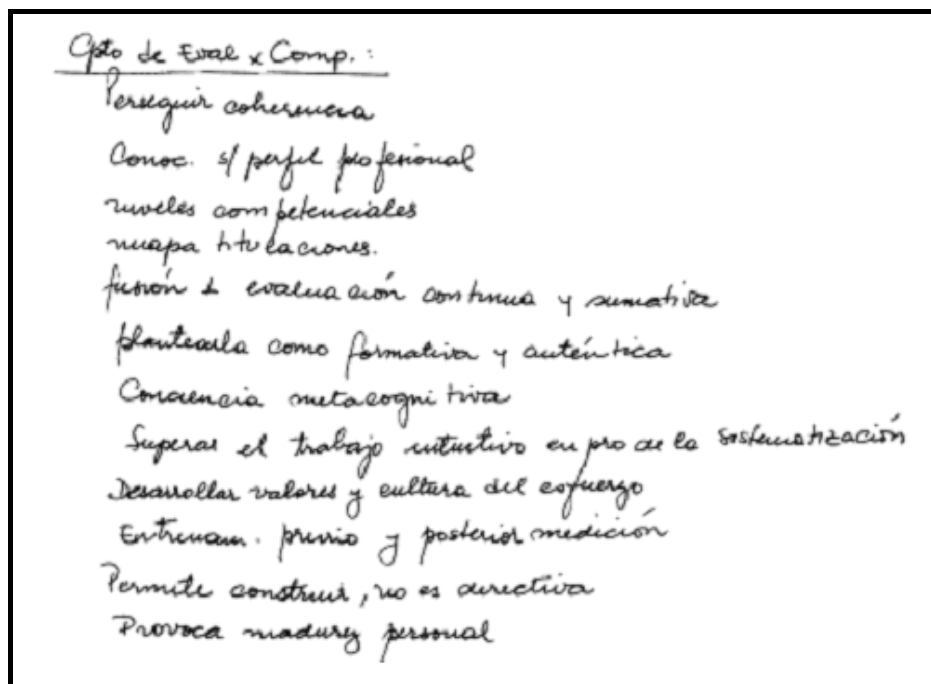 Cpto de Eval x Comp.:
Perseguir coherencia
Conoc. s/ perfil profesional
niveles competenciales
mapa titulaciones.
fusión evaluación continua y sumativa
plantearla como formativa y auténtica
Conciencia metacognitiva
Superar el trabajo intuitivo en pro de la sistematización
Desarrollar valores y cultura del esfuerzo
Entrenam. previo y posterior medición
Permite construir, no es directiva
Provoca madurez personal